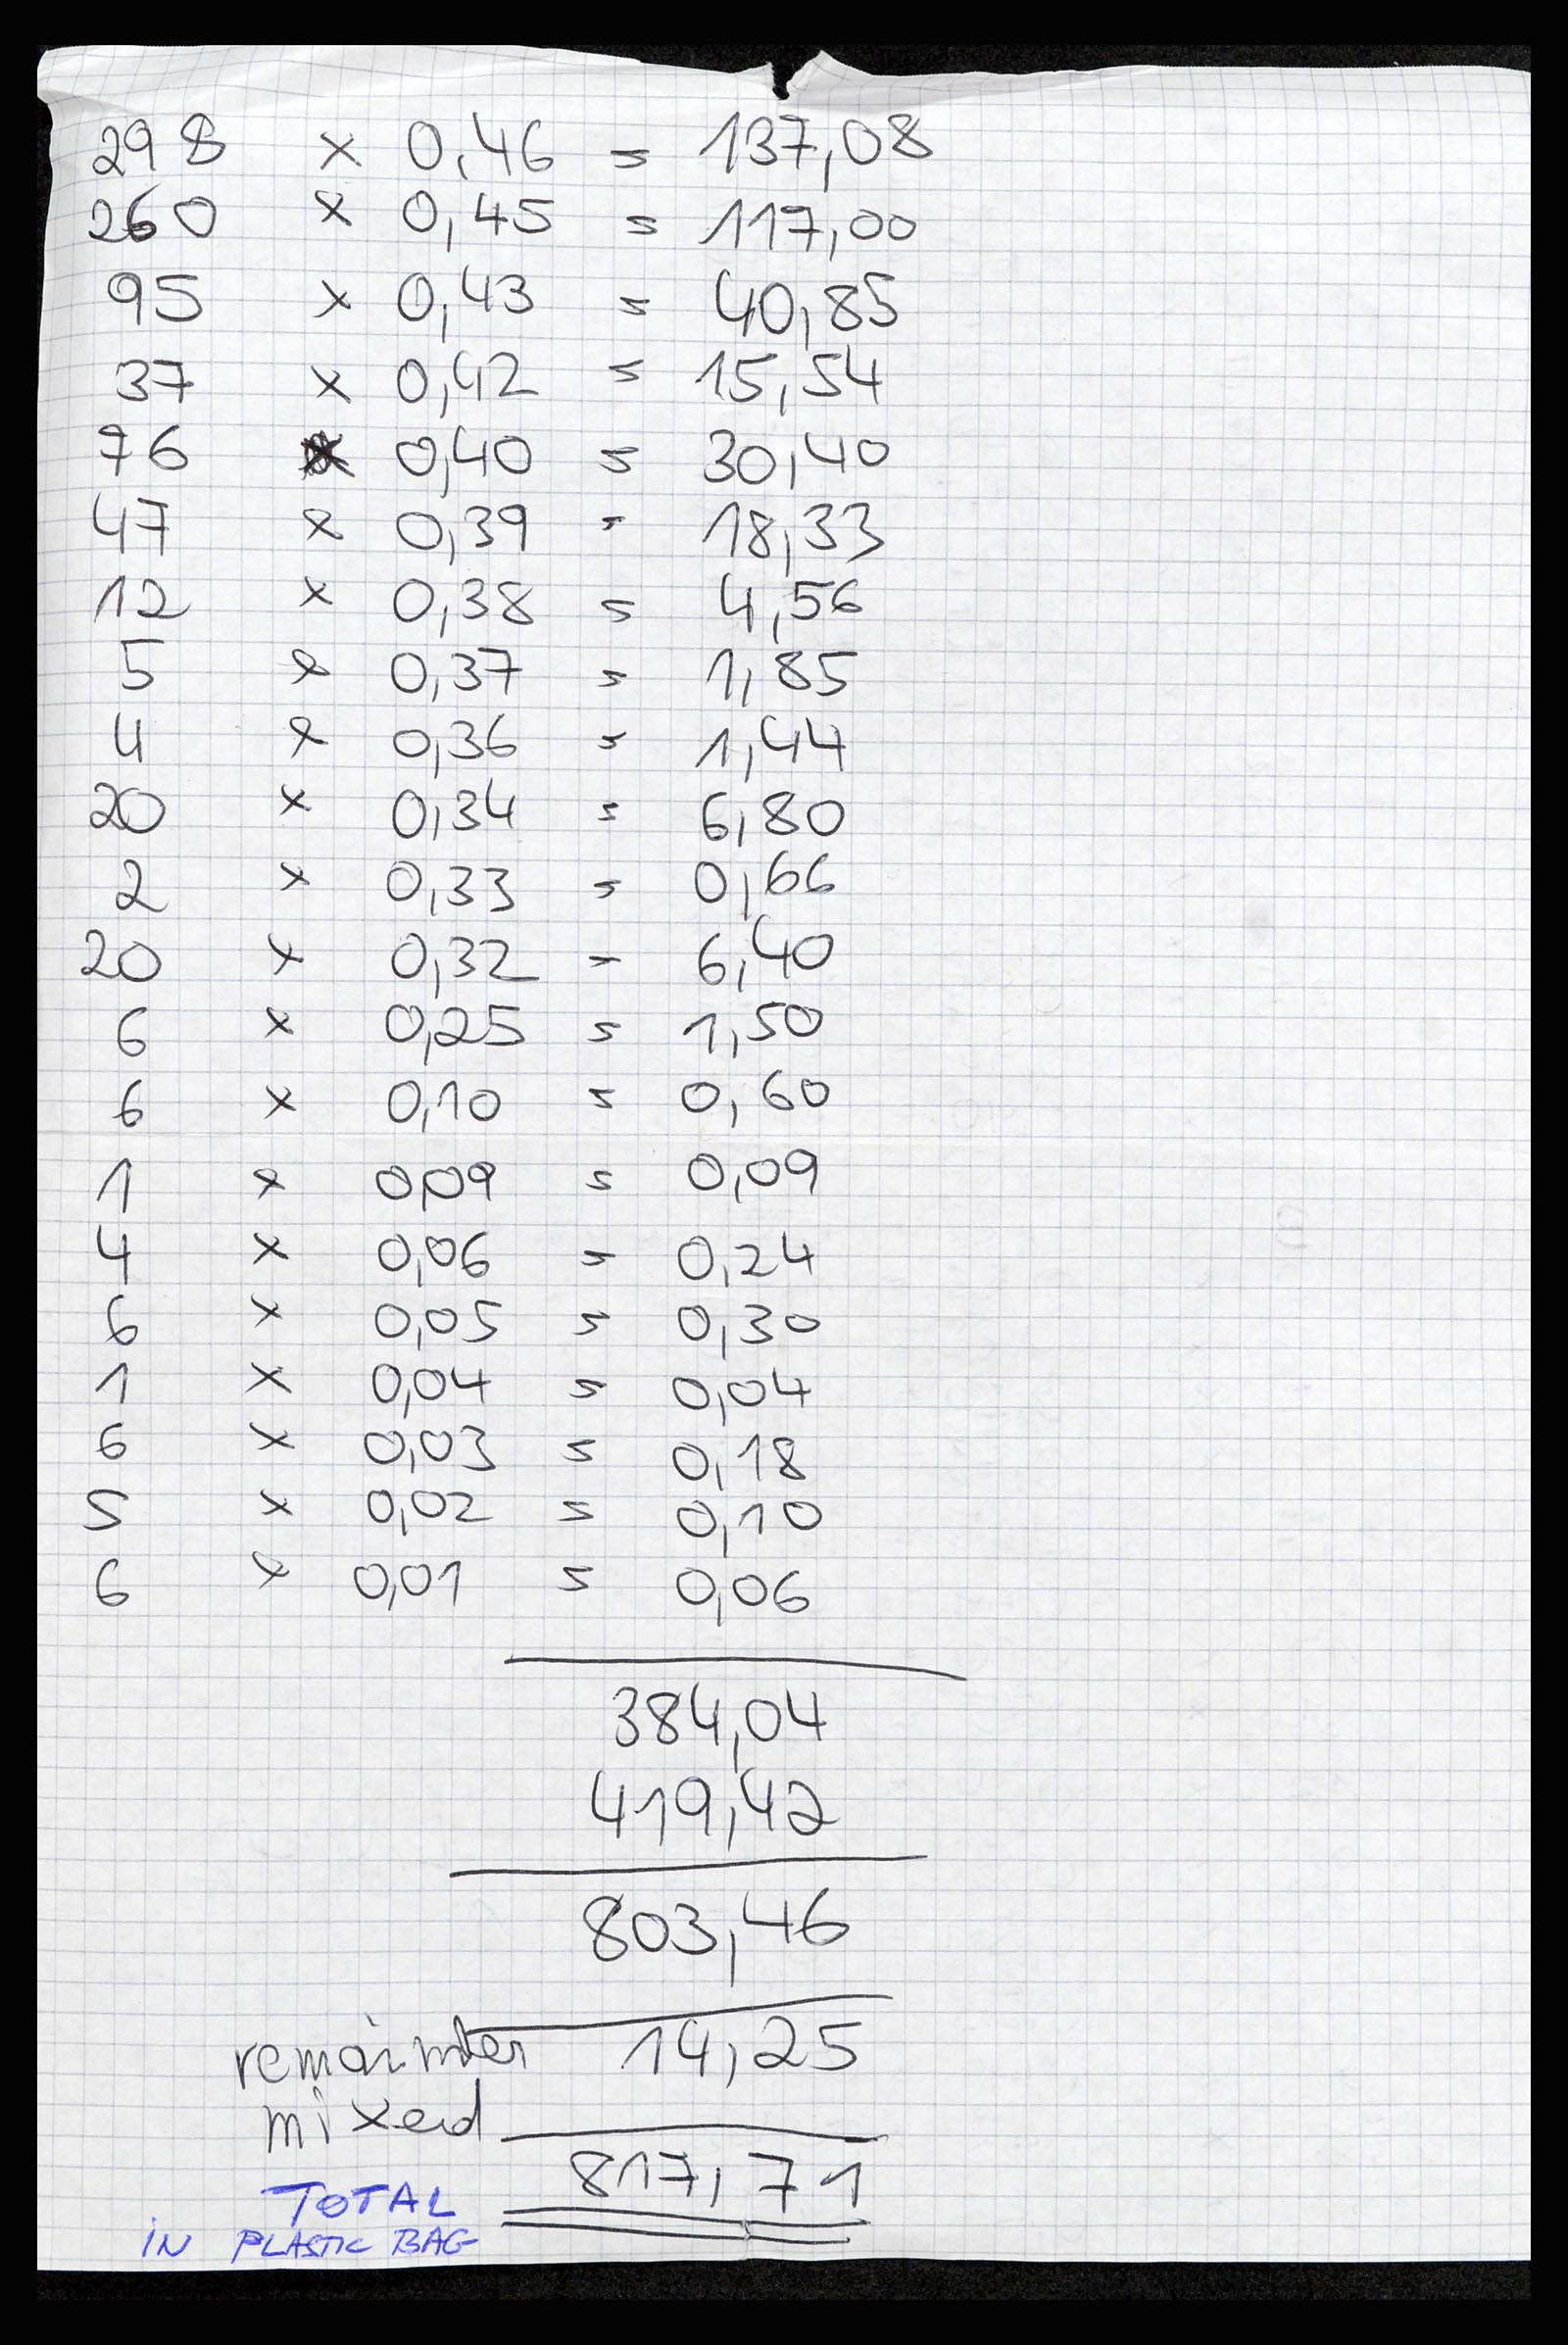 298 x 0,46 = 137,08
260 x 0,45 = 117,00
95 x 0,43 = 40,85
37 x 0,42 = 15,54
76 x 0,40 = 30,40
47 x 0,39 = 18,33
12 x 0,38 = 4,56
5 x 0,37 = 1,85
4 x 0,36 = 1,44
20 x 0,34 = 6,80
2 x 0,33 = 0,66
20 x 0,32 = 6,40
6 x 0,25 = 1,50
6 x 0,10 = 0,60
1 x 0,09 = 0,09
4 x 0,06 = 0,24
6 x 0,05 = 0,30
1 x 0,04 = 0,04
6 x 0,03 = 0,18
5 x 0,02 = 0,10
6 x 0,01 = 0,06
384,04
419,42
803,46
remainder 14,25
mixed
TOTAL 817,71
IN PLASTIC BAG